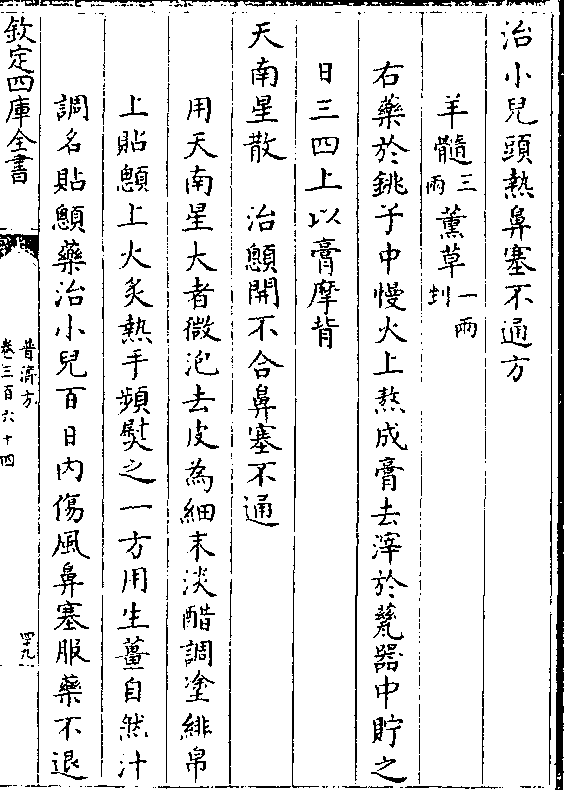 治小兒頭熱鼻塞不通方
羊髓三兩 薰草一兩剉
右藥於銚子中慢火上熬成膏去滓於甆器中貯之
日三四上以膏摩背
天南星散 治顖開不合鼻塞不通
用天南星大者微泡去皮為細末淡醋調塗緋帛
上貼顖上火炙熱手頻熨之一方用生薑自然汁
調名貼顖藥治小兒百日內傷風鼻塞服藥不退
欽定四庫全書
普濟方
卷三百六十四
四十九